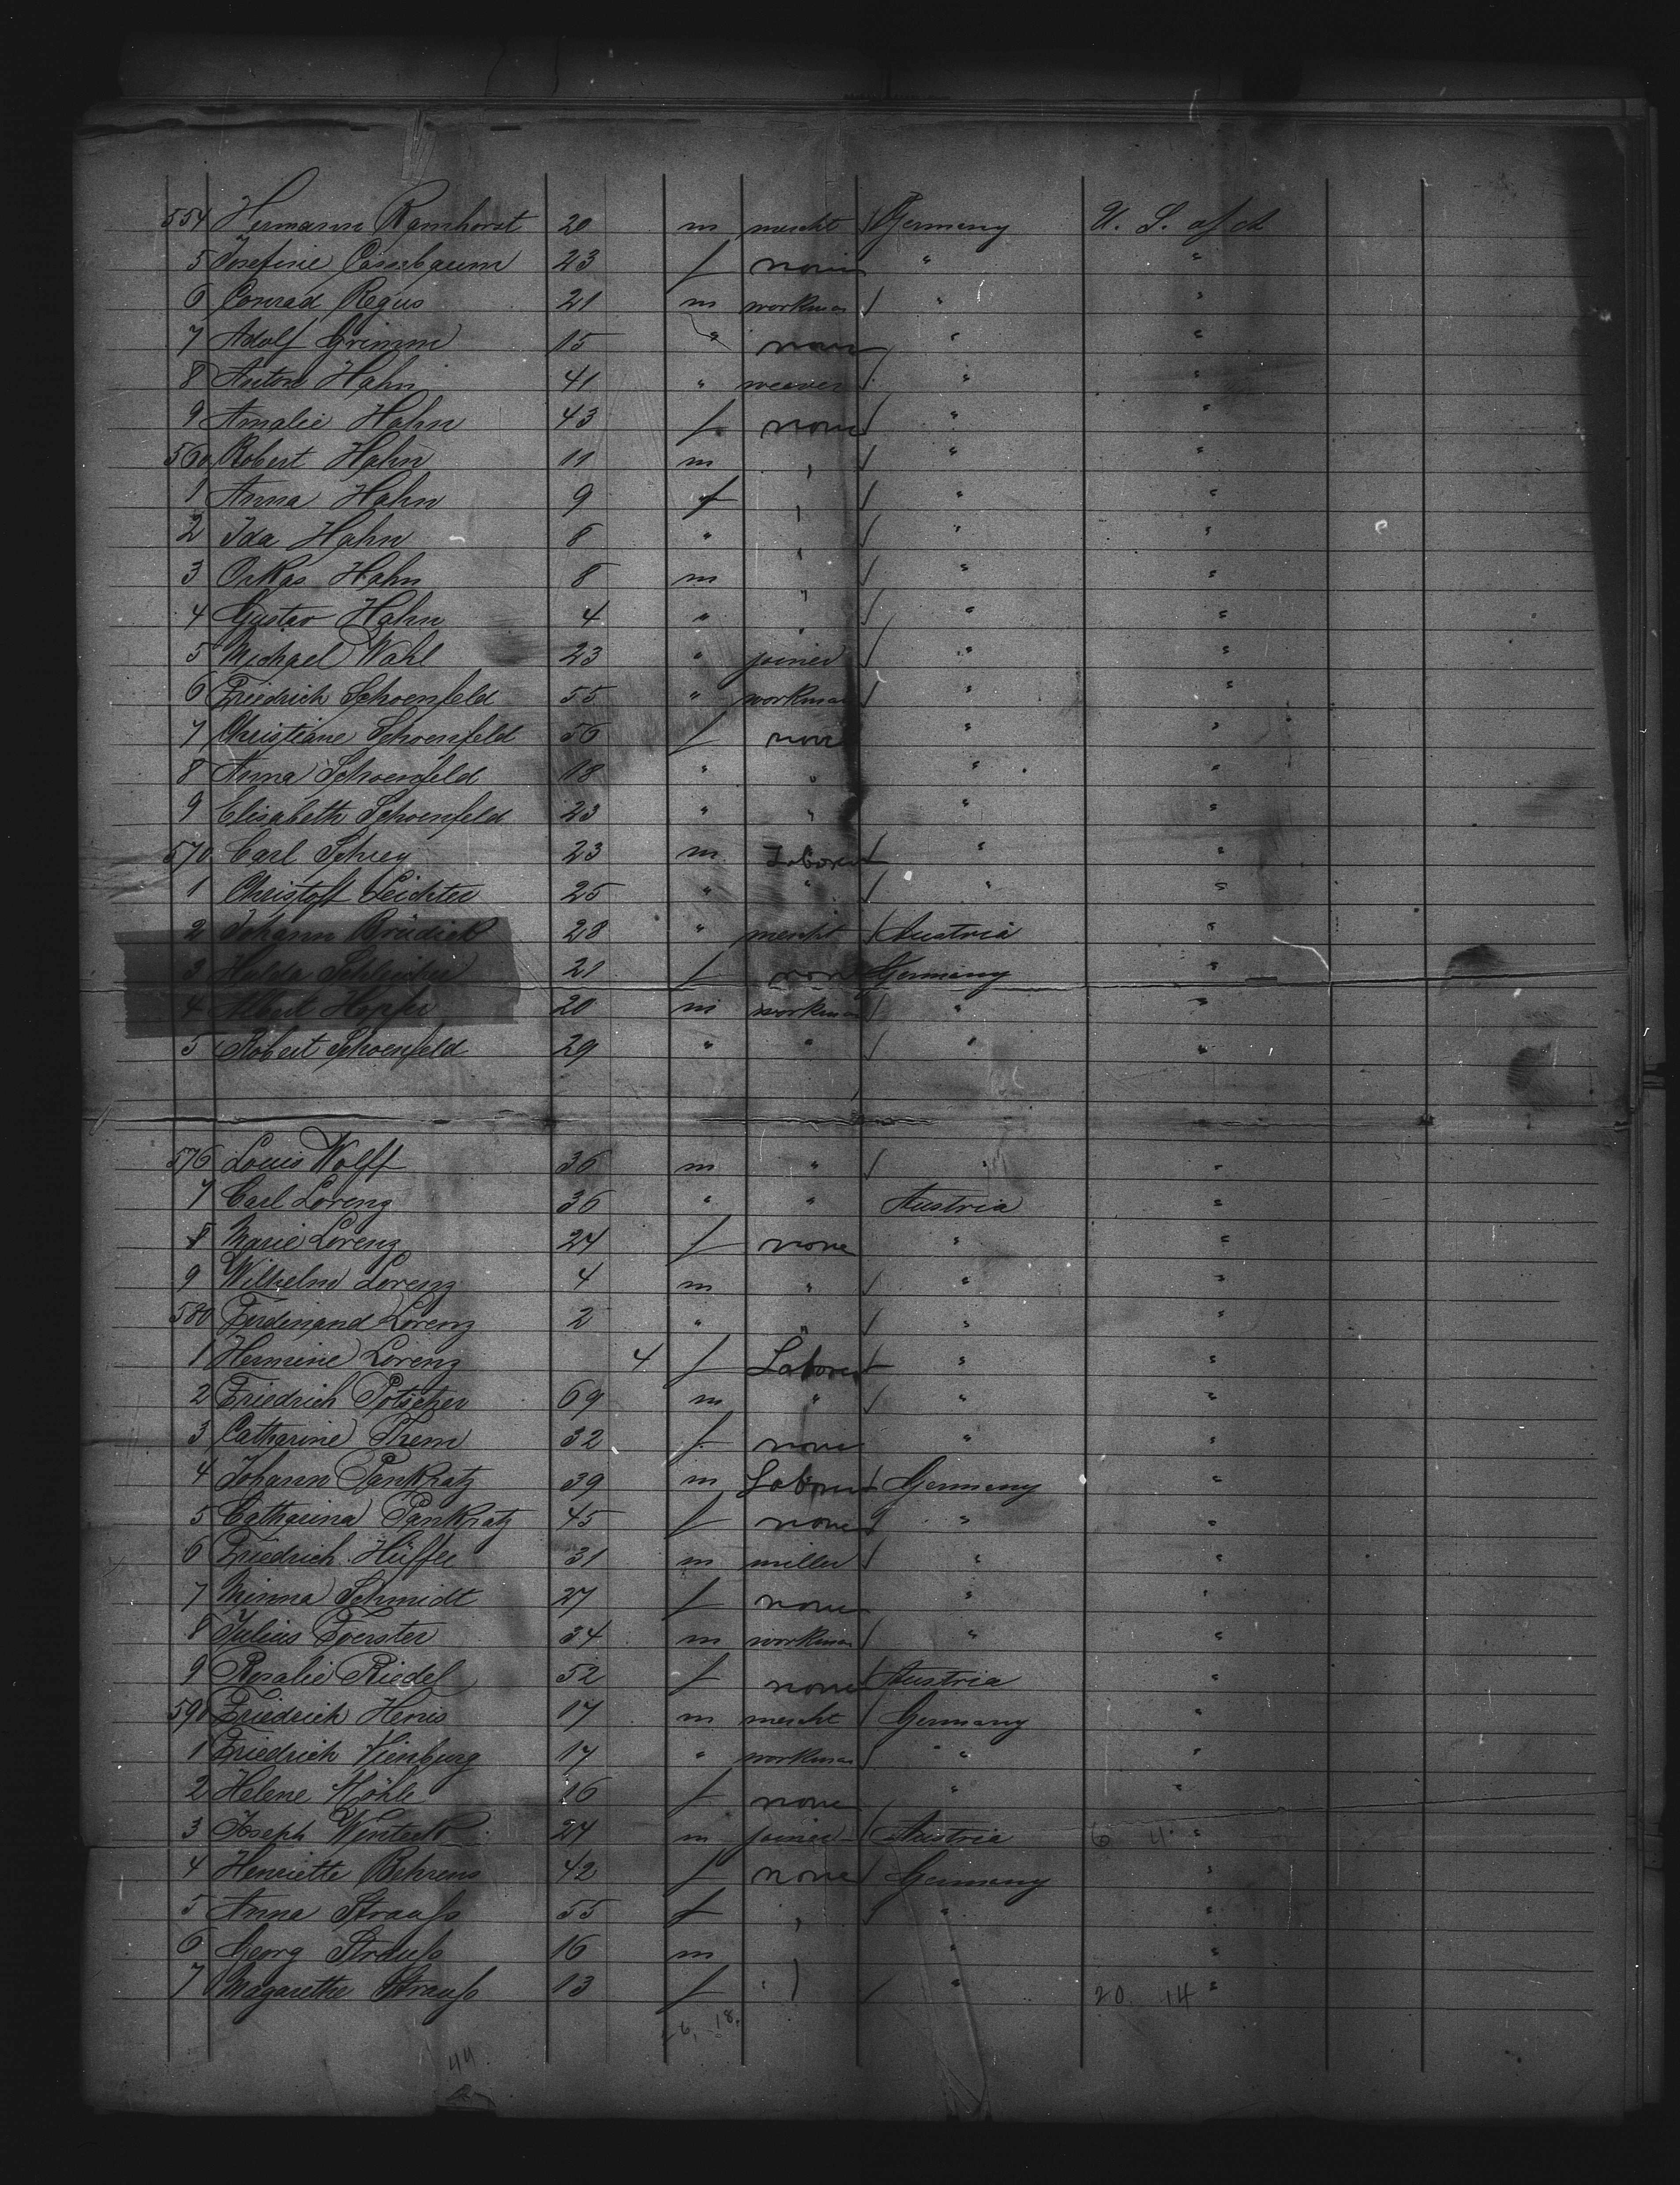 554 Hermann Ramhorst 20 m mercht Germany U. S. of A
5 Josefine Cassebaum 23 f none " "
6 Conrad Regus 21 m workman " "
7 Adolf Grimm 15 " none " "
8 Anton Hahn 41 " weaver " "
9 Amalie Hahn 43 f none " "
560 Robert Hahn 11 m " " "
1 Anna Hahn 9 f " " "
2 Ida Hahn 8 " " " "
3 Oskar Hahn 8 m " " "
4 Gustav Hahn 4 " " " "
5 Michael Wahl 23 " joiner " "
6 Friedrich Schoenfeld 55 " workman " "
7 Christiane Schoenfeld 56 f none " "
8 Anna Schoenfeld 18 " " " "
9 Elisabeth Schoenfeld 23 " " " "
570 Carl Schrey 23 m Laborer " "
1 Christoff Leichter 25 " " " "
2 Johann 28 " mercht Austria "
3 Hulda 21 f none Germany "
4 Albert Hopfer 20 m workman " "
5 Robert Schoenfeld 29 " " " "
576 Louis Wolff 36 m " " "
7 Carl Lorenz 36 " " Austria "
8 Marie Lorenz 24 f none " "
9 Wilhelm Lorenz 4 m " " "
580 Ferdinand Lorenz 2 " " " "
1 Hermine Lorenz 4 f Laborer " "
2 Friedrich Potscher 69 m " " "
3 Catharine Threm 32 f none " "
4 Johann Pankratz 39 m Laborer Germany "
5 Catharina Pankratz 45 f none " "
6 Friedrich Hüffer 31 m miller " "
7 Minna Schmidt 27 f none " "
8 Julius Foerster 34 m workman " "
9 Rosalie Riedel 52 f none Austria "
590 Friedrich Henis 17 m mercht Germany "
1 Friedrich Vienburg 17 " workman " "
2 Helene Möhle 16 f none " "
3 Joseph 24 m joiner Austria 6 4 "
4 Henriette Behrens 42 f none Germany "
5 Anna Strauß 55 f " " "
6 Georg Strauß 16 m " "
7 Magarethe Strauß 13 f " " 20. 14 "
26, 18,
44